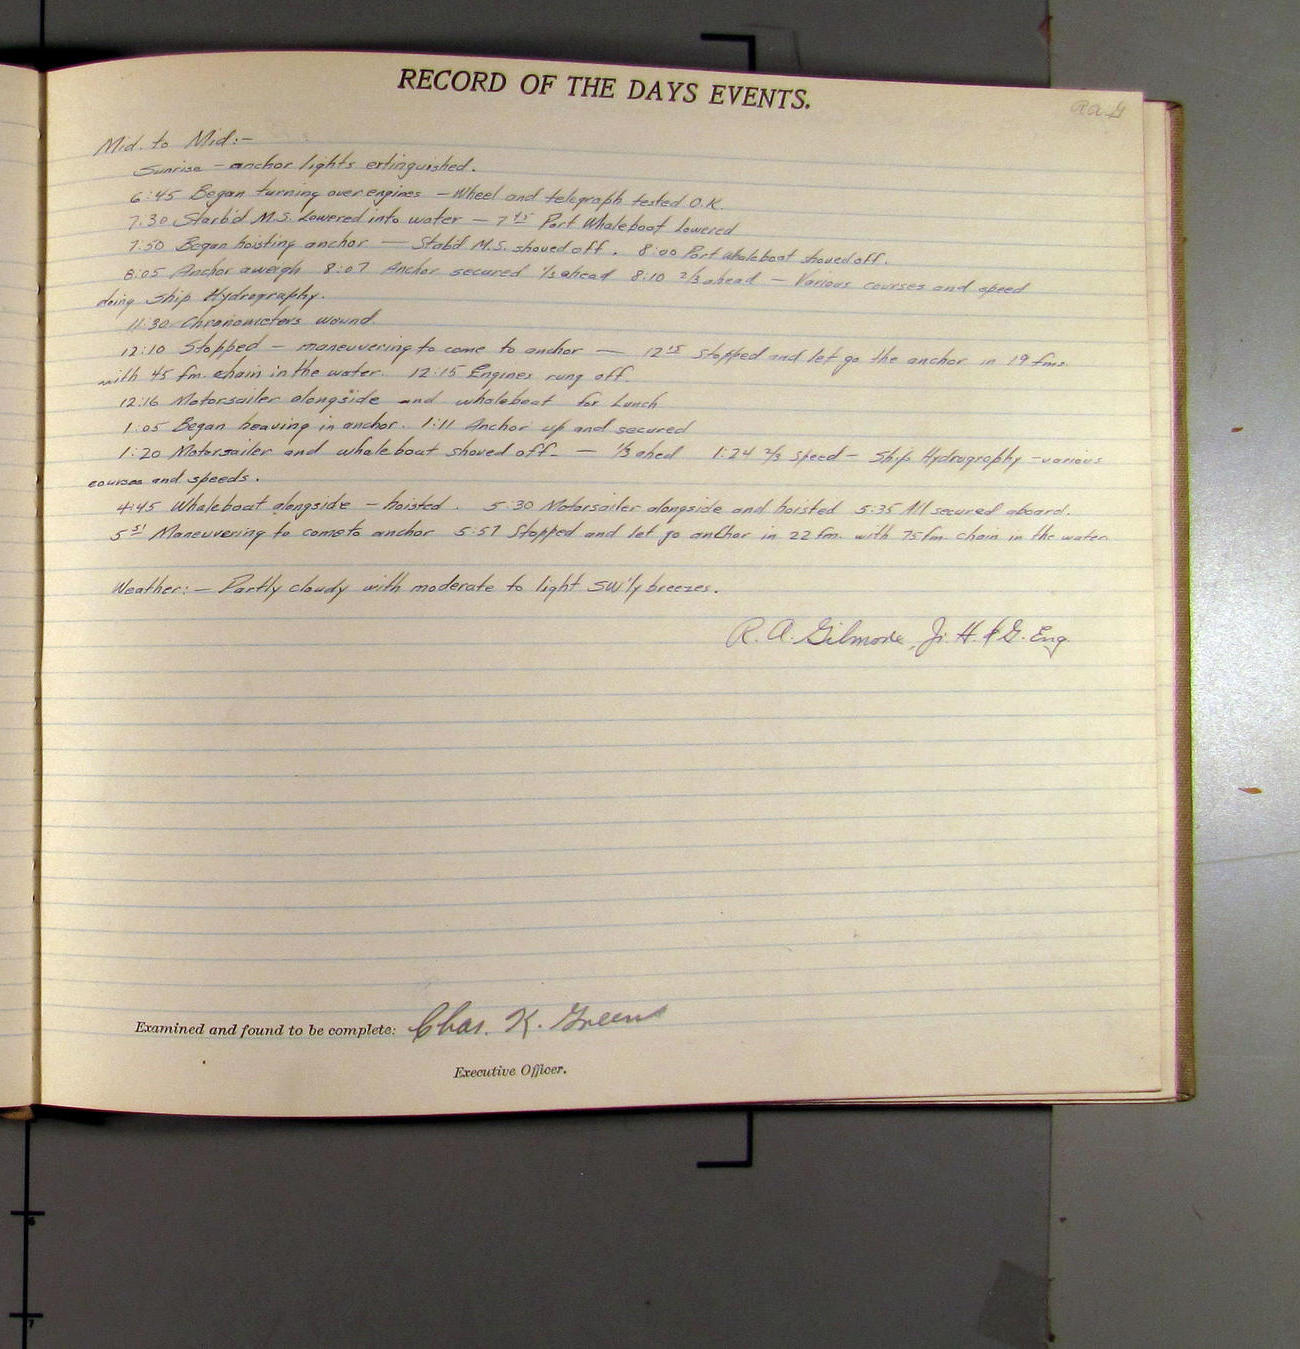 RECORD OF THE DAYS EVENTS.
R.A.G
Mid. to Mid:-
Sunrise - anchor lights extinguished.
6:45 Began turning over engines - Wheel and telegraph tested O.K.
7:30 Starb'd M.S. Lowered into water - 7 45 Port Whaleboat lowered
7:50 Began hoisting anchor - Stab'd M.S. shoved off. 8:00 Port whaleboat shoved off.
8:05 Anchor aweigh 8:07 Anchor secured 1/3 ahead 8:10 2/3 ahead - Various courses and speed
doing Ship Hydrography.
11:30 Chronometers wound.
12:10 Stopped - maneuvering to come to anchor - 12 15 stopped and let go the anchor in 19 fms.
with 45 fm. chain in the water. 12:15 Engines rung off.
12:16 Motorsailer alongside and whaleboat for Lunch
1:05 Began heaving in anchor. 1:11 Anchor up and secured
1:20 Motorsailer and whaleboat shoved off. - 1/3 ahed 1:24 2/3 speed - Ship Hydrography - various
courses and speeds.
4:45 Whaleboat alongside - hoisted. 5:30 Motorsailer alongside and hoisted 5:35 All secured aboard.
5 51 Maneuvering to come to anchor 5:57 Stopped and let go anchor in 22 fm. with 75 fm. chain in the water.
Weather: - Partly cloudy with moderate to light SW'ly breezes.
R. A. Gilmore, Jr. H. & G. Eng.
Examined and found to be complete: Chas. K. Green
Executive Officer.
6
7